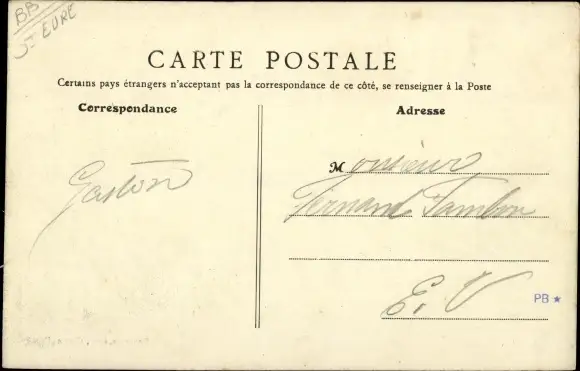 BB
ST EVRE
CARTE POSTALE
Certains pays étrangers n'acceptant pas la correspondance de ce côté, se renseigner à la Poste
Correspondance
Adresse
Monsieur
Gaston
Fernand Tambour
E. V
PB ★